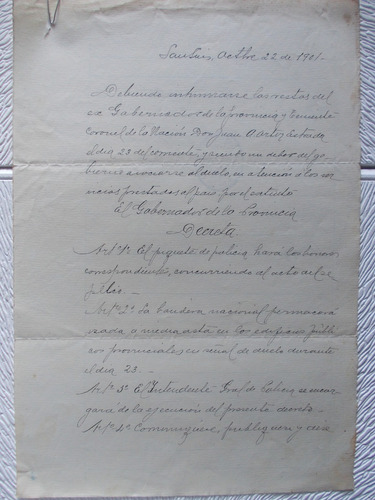 San Luis, Octbre 22 de 1901-
Debiendo inhumarse los restos del
ex Gobernador de la provincia y Teniente
Coronel de la Nación Don Juan A.
el dia 23 del corriente, y siendo un deber del go
bierno asociarse al duelo, en atención a los ser
vicios prestados al país por el extinto
El Gobernador de la Provincia
Decreta
Art. 1º El piquete de policia hará los honores
correspondientes, concurriendo al acto del se
pelio.
Art. 2º La bandera nacional permanecerá
izada a media asta en los edificios públi
cos provinciales en señal de duelo durante
el dia 23.
Art. 3º El Intendente Gral de Policia se encar
gará de la ejecución del presente decreto.
Art. 4º Comuníquese, publíquese y